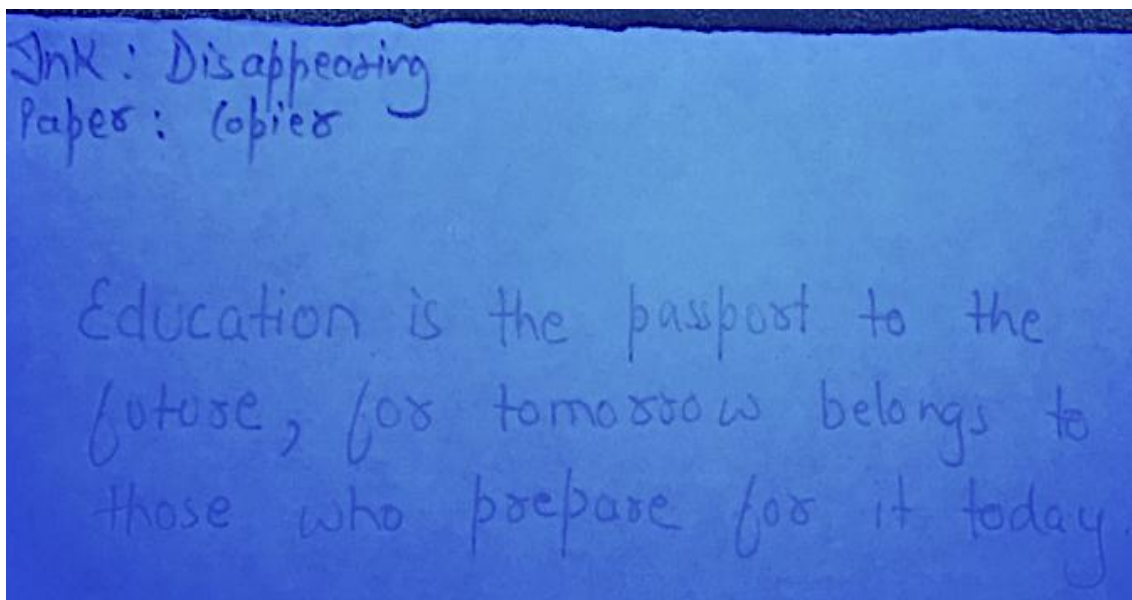 Ink: Disappearing
Paper: Copier
Education is the passport to the
future, for tomorrow belongs to
those who prepare for it today.